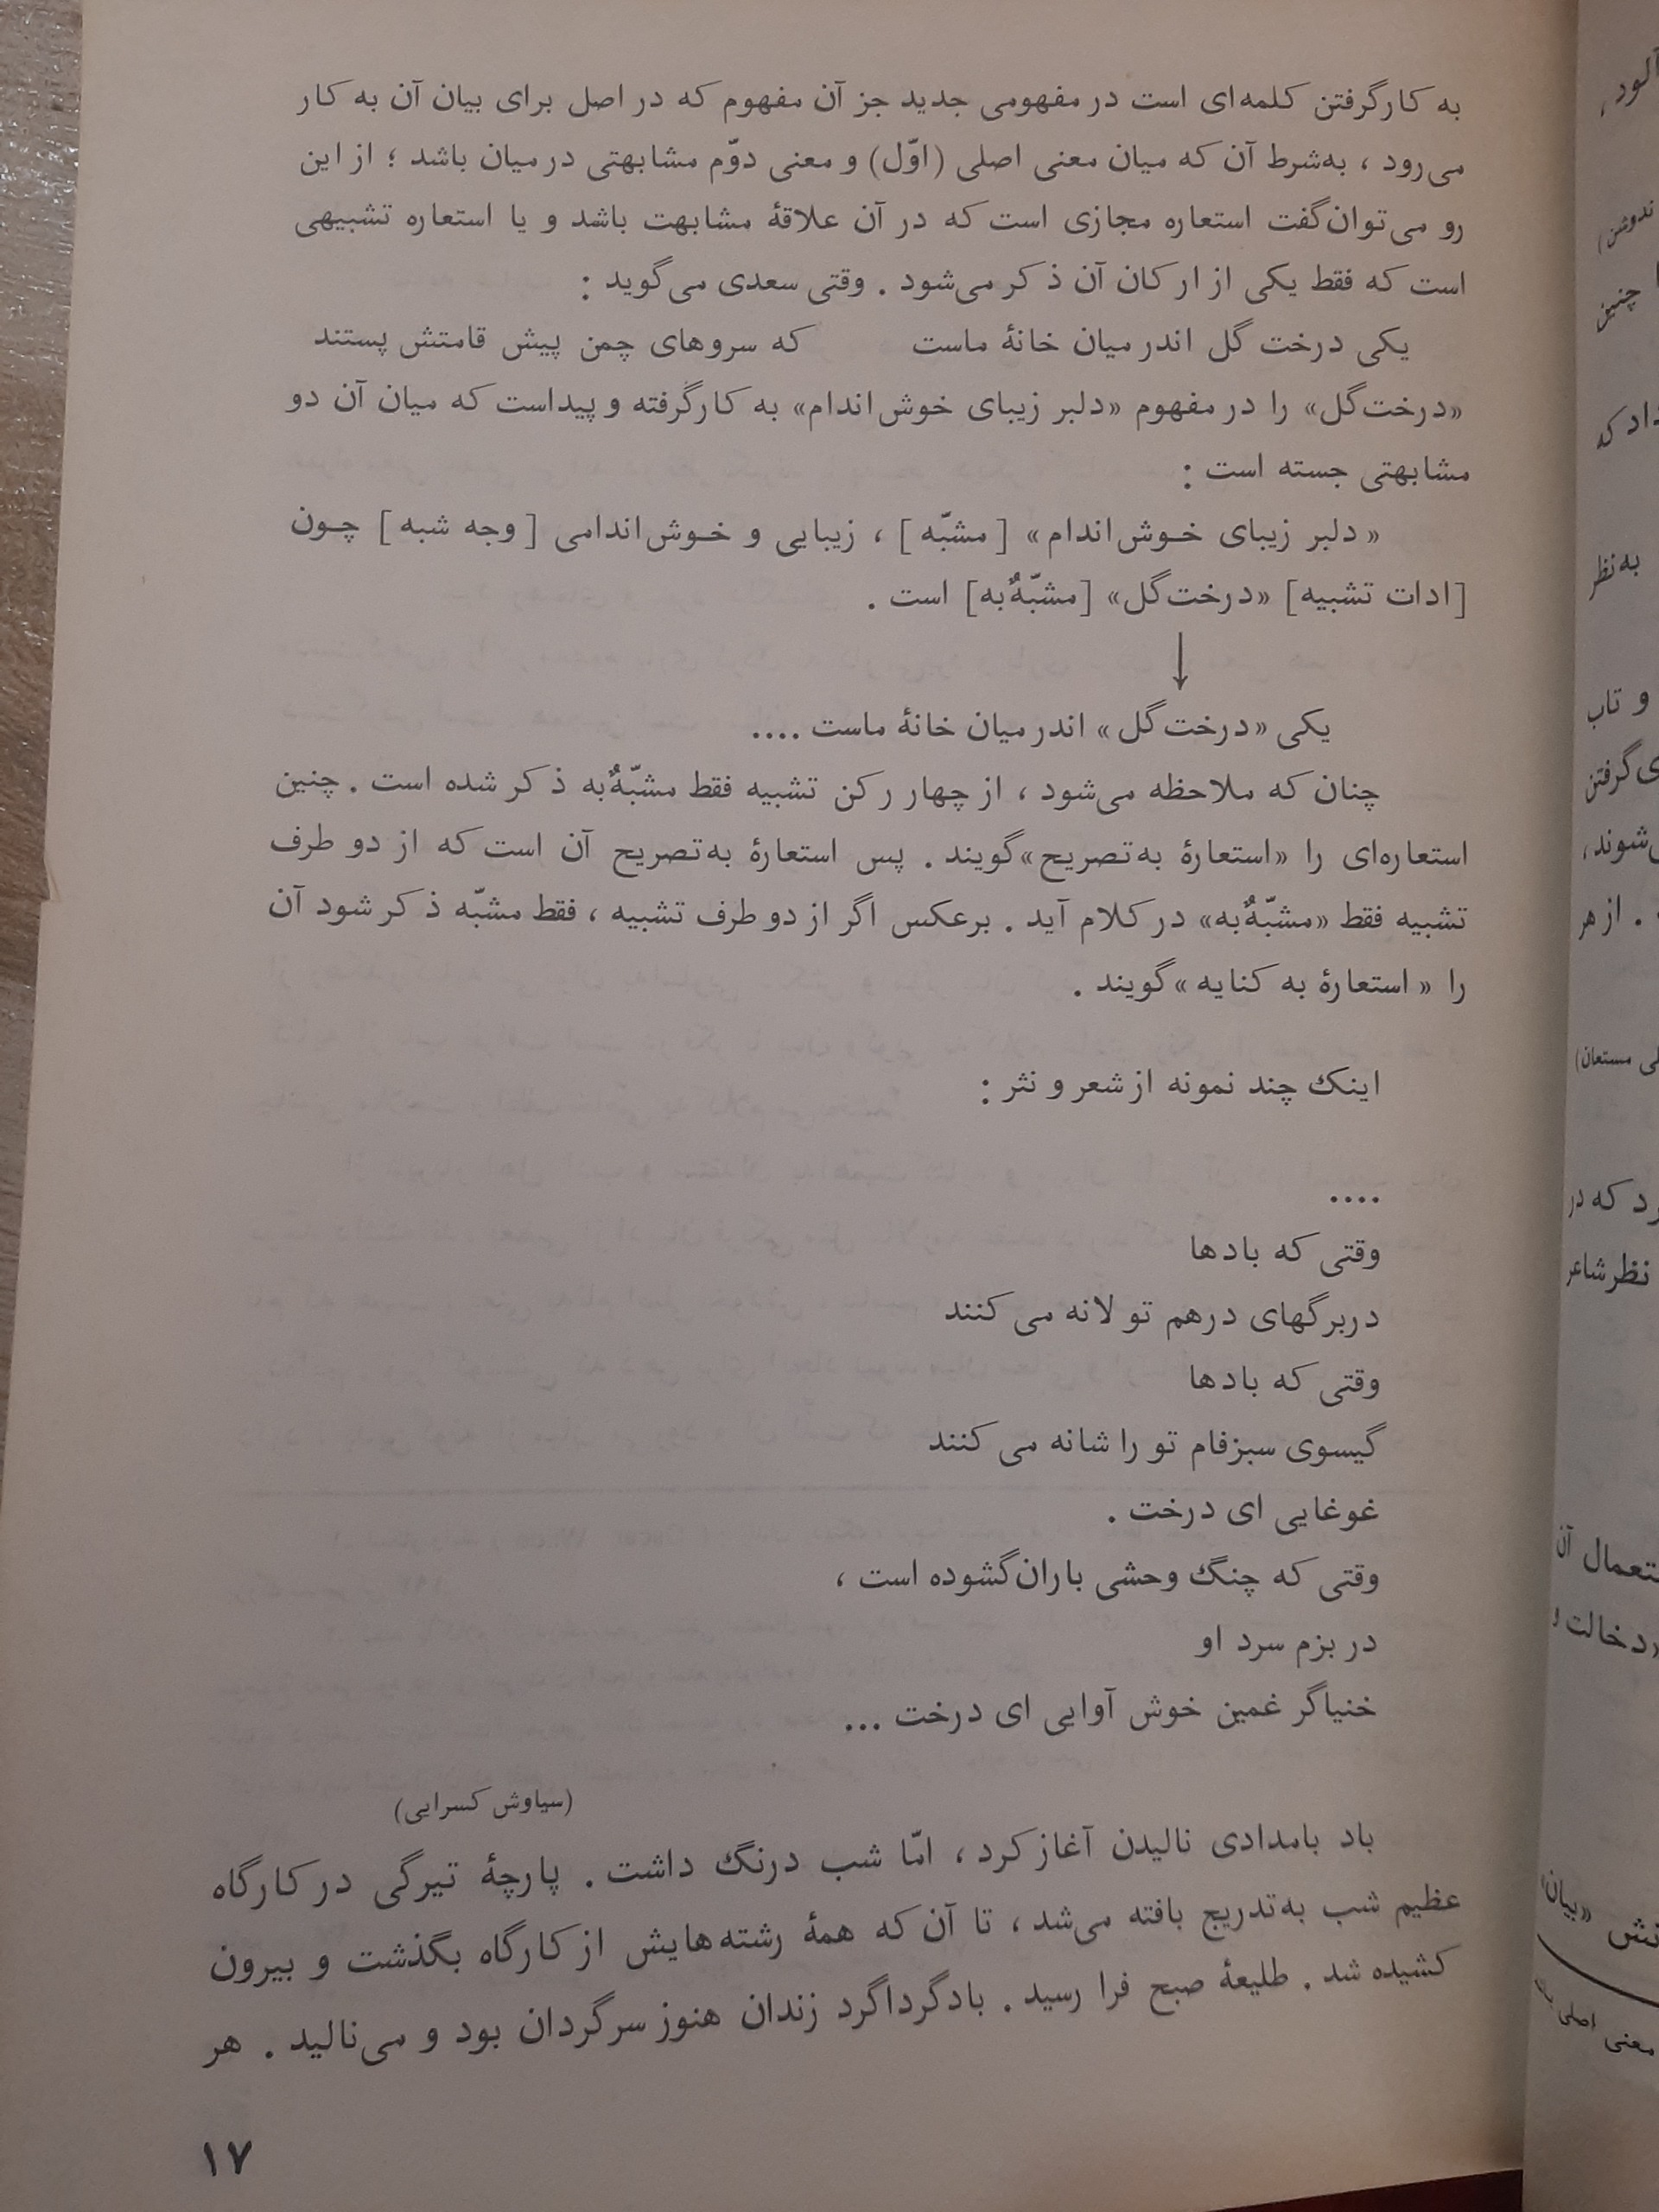 به کارگرفتن کلمه‌ای است در مفهومی جدید جز آن مفهوم که در اصل برای بیان آن به کار
می‌رود ، به‌شرط آن که میان معنی اصلی (اوّل) و معنی دوّم مشابهتی در میان باشد ؛ از این
رو می‌توان‌گفت استعاره مجازی است که در آن علاقهٔ مشابهت باشد و یا استعاره تشبیهی
است که فقط یکی از ارکان آن ذکر می‌شود . وقتی سعدی می‌گوید :
یکی درخت گل اندر میان خانهٔ ماست که سروهای چمن پیش قامتش پستند
«درخت‌گل» را در مفهوم «دلبر زیبای خوش‌اندام» به کارگرفته و پیداست که میان آن دو
مشابهتی جسته است :
« دلبر زیبای خوش‌اندام» [مشبّه] ، زیبایی و خوش‌اندامی [وجه شبه] چون
[ادات تشبیه] «درخت‌گل» [مشبّهٌ‌به] است .
↓
یکی «درخت‌گل» اندر میان خانهٔ ماست ....
چنان که ملاحظه می‌شود ، از چهار رکن تشبیه فقط مشبّهٌ‌به ذکر شده است . چنین
استعاره‌ای را «استعارهٔ به‌تصریح»گویند . پس استعارهٔ به‌تصریح آن است که از دو طرف
تشبیه فقط «مشبّهٌ‌به» در کلام آید . برعکس اگر از دو طرف تشبیه ، فقط مشبّه ذکر شود آن
را « استعارهٔ به کنایه »گویند .
اینک چند نمونه از شعر و نثر :
....
وقتی که بادها
در برگهای درهم تو لانه می کنند
وقتی که بادها
گیسوی سبزفام تو را شانه می کنند
غوغایی ای درخت .
وقتی که چنگ وحشی باران‌گشوده است ،
در بزم سرد او
خنیاگر غمین خوش آوایی ای درخت ...
(سیاوش کسرایی)
باد بامدادی نالیدن آغاز کرد ، امّا شب درنگ داشت . پارچهٔ تیرگی در کارگاه
عظیم شب به‌تدریج بافته می‌شد ، تا آن که همهٔ رشته‌هایش از کارگاه بگذشت و بیرون
کشیده شد . طلیعهٔ صبح فرا رسید . باد گرداگرد زندان هنوز سرگردان بود و می‌نالید . هر
۱۷
ندوشن)
چنین
داد که
به‌نظر
و تاب
گرفتن
. از هر
مستعان)
که در
نظر شاعر
آن
«دخالت و
«بیان»
معنی اصلی